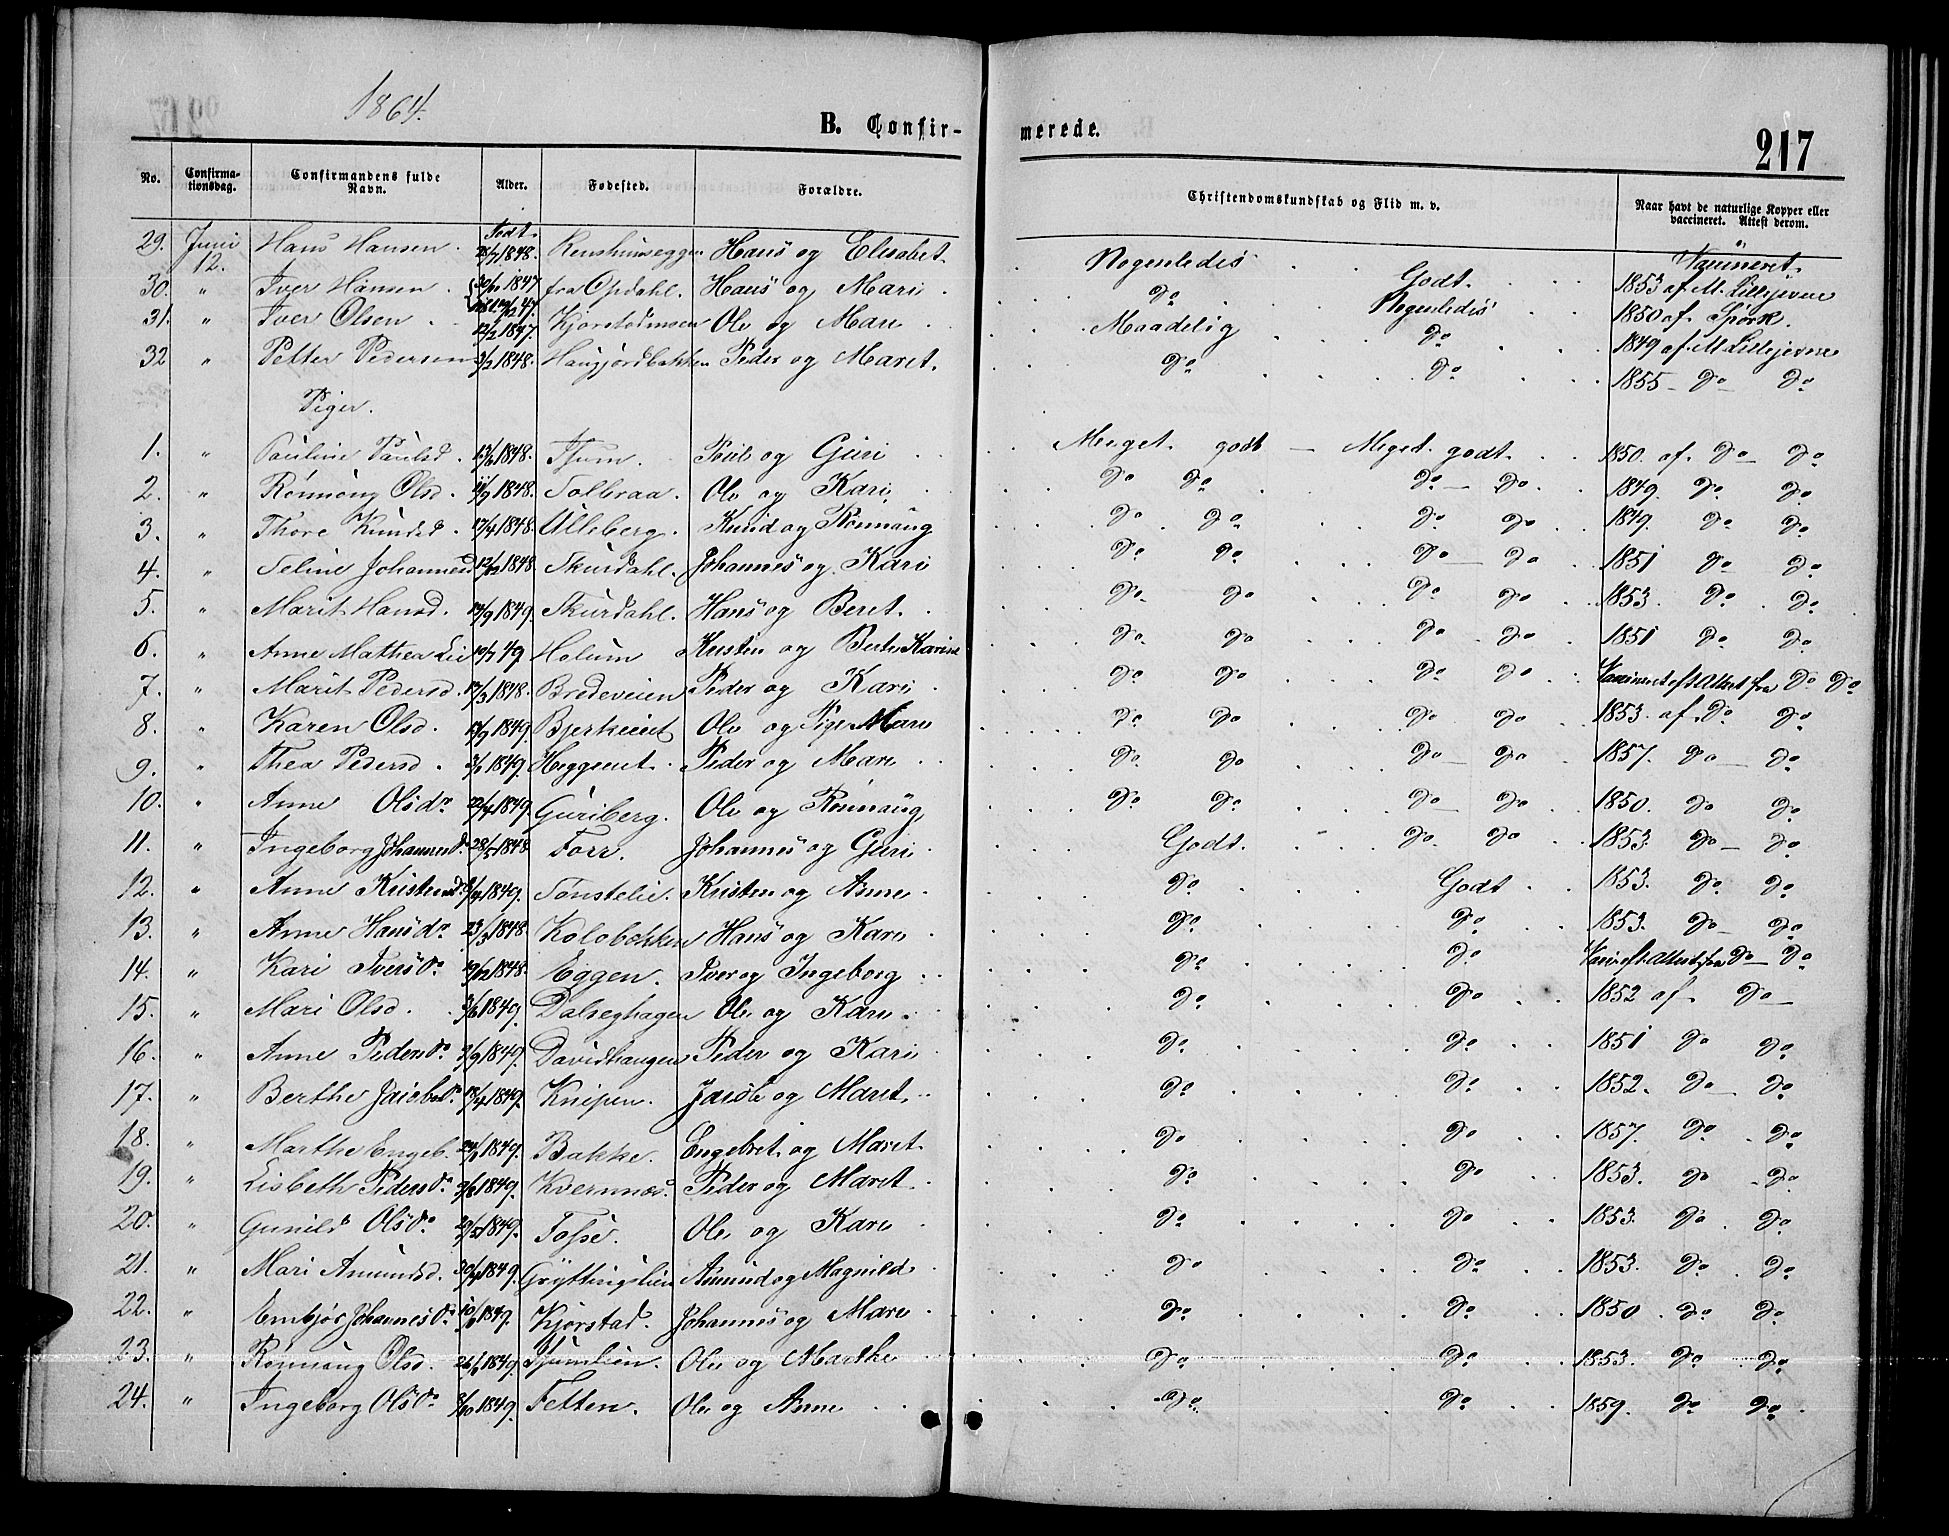 1864.
B. Confirmerede.
217
No. Confirmationsdag. Confirmandens fulde Navn. Alder. Fødested. Forældre. Christendomskundskab og Flid m. v. Naar havt de naturlige Kopper eller vaccineret. Attest derom.
Født Vaccineret
29. Juni 12. Hans Hansen. 1848. Hans og Elisabet. Nogenledes Godt. 1853 af M. Lillejevne
30. " Iver Hansen. 30/10 1847 fra Opdahl. Hans og Marie do Nogenledes 1850 af Spörk.
31. " Iver Olsen 12/2 1847. Kjorstadmoen Ole og Mari Maadelig do 1849 af M. Lillejevne
32 " Petter Pedersen 1848. Haugjordbakken Peder og Maret. do do 1855 - do - do
Piger.
1. " Pauline Paulsd. 13/6 1848. Tjum. Poul og Guri Meget godt - Meget godt. 1850. af. do - do
2. " Rønnaug Olsd. 11/9 1848. Solbraa. Ole og Kari do do do - do. 1849. do do
3. " Thore Knudsd. 17/4 1848. Ulleberg. Knud og Rønnaug do do do do 1849. do do
4. " Seline Johannesd 12/12 1848 Skurdahl. Johannes og Kari do do do do 1851 do do
5. " Marit Hansd. 13/9 1849. Skurdahl. Hans og Beret. do do do do 1853. do do
6. " Anne Mathea Lie 10/7 49 Holum Kristen og Berte Karine do do do do 1851 do do
7. " Marit Pedersd. 17/3 1848. Bredeveien Peder og Kari do do do do Vaccineret eft Attest fra do do
8. " Karen Olsd. 13/9 1849. Bjerkeiet Ole og Pige Mari do do do do 1853. af. do do
9. " Thea Pedersd. 3/1 1849. Heggeeiet. Peder og Mari do do do do 1857. do - do
10. " Anne Olsdr. 22/4 1849. Guriberg. Ole og Rønnaug do do do do 1850. do do
11. " Ingeborg Johannesdr. 28/5 1848 Forr. Johannes og Guri Godt. do do 1853. do - do
12. " Anne Kristensdr 1849. Tonstelie. Kristen og Anne do Godt 1853. do do
13. " Anne Hansdr. 23/3 1848. Kolobekken Hans og Kari do do 1853. do - do
14. " Kari Iversdr. 19/12 1848. Eggen. Iver og Ingeborg do do Vacc. eft. Attest fra do - do
15. " Mari Olsd. 3/6 1849. Dalseghagen Ole og Kari do do 1852 af. do -
16. " Anne Pedersdr. 3/9 1849. Davidhaugen Peder og Kari do do 1851 do do
17. " Berthe Jacobsdr. 18/4 1849. Knipen. Jacob og Maret. do do 1852. do - do
18. " Marthe Engeb. 1849. Bakke. Engebret og Maret. do do 1857. do do
19. " Lisbeth Pedersdr. 1849. Kvernnes. Peder og Maret do do 1853. do - do
20. " Gunild Olsdr. 29/5 1849. Fosse. Ole og Kari do do 1853. do do
21. " Mari Amundsd. 30/4 1849. Gryttinglien Amund og Magnild do do 1853. do do
22. " Embjør Johannesdr. 1849. Kjorstad. Johannes og Mari do do 1850. do do
23. " Rønnaug Olsd. 1849. Tjumlien. Ole og Marthe do do 1853. do do
24. " Ingeborg Olsdr. 8/10 1849. Fetten. Ole og Anne do do 1859. do do